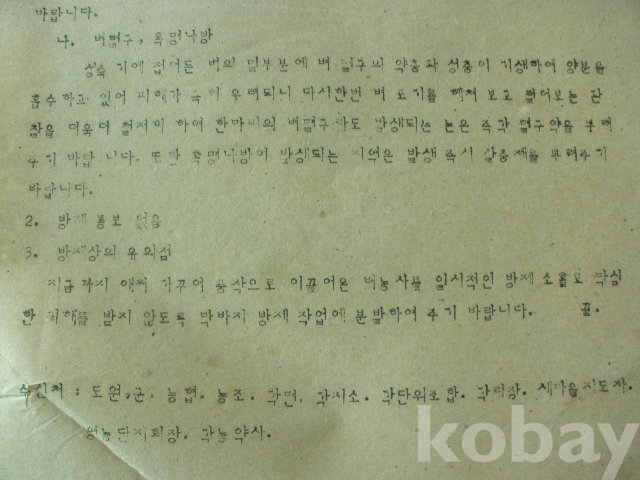 바랍니다.
나. 벼멸구, 혹명나방
성숙기에 접어든 벼의 밑부분에 벼 멸구의 약충과 성충이 기생하여 양분을
흡수하고 있어 피해가 우려되니 다시한번 벼 포기를 헤쳐 보고 털어보는 관
찰을 더욱더 철저히 하여 한마리의 벼멸구라도 발생되는 논은 즉각 멸구약을
주기 바랍 니다. 또한 혹명나방이 발생되는 지역은 발생 즉시 살충제를 뿌려주기
바랍니다.
2. 방제 통보 없음
3. 방제상의 유의점
지금까지 애써 가꾸어 풍작으로 이끌어온 벼농사를 일시적인 방제 소홀로 막심
한 피해를 받지 않도록 막바지 방제 작업에 분발하여 주기 바랍니다. 끝.
수신처 : 도원, 군, 농협, 농조, 각면, 각지소, 각단위조합, 각리장, 새마을지도자.
영농단지회장, 각농약사.
kobay